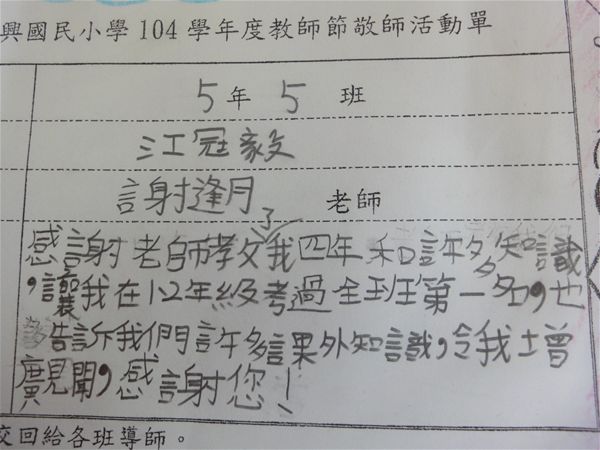 興國民小學104學年度教師節敬師活動單
5年5班
江冠毅
謝逢月 老師
感謝老師教了我四年和許多知識
,讓我在1、2年級考過全班第一名,也
告訴我們許多課外知識,令我增
廣見聞,感謝您!
交回給各班導師。